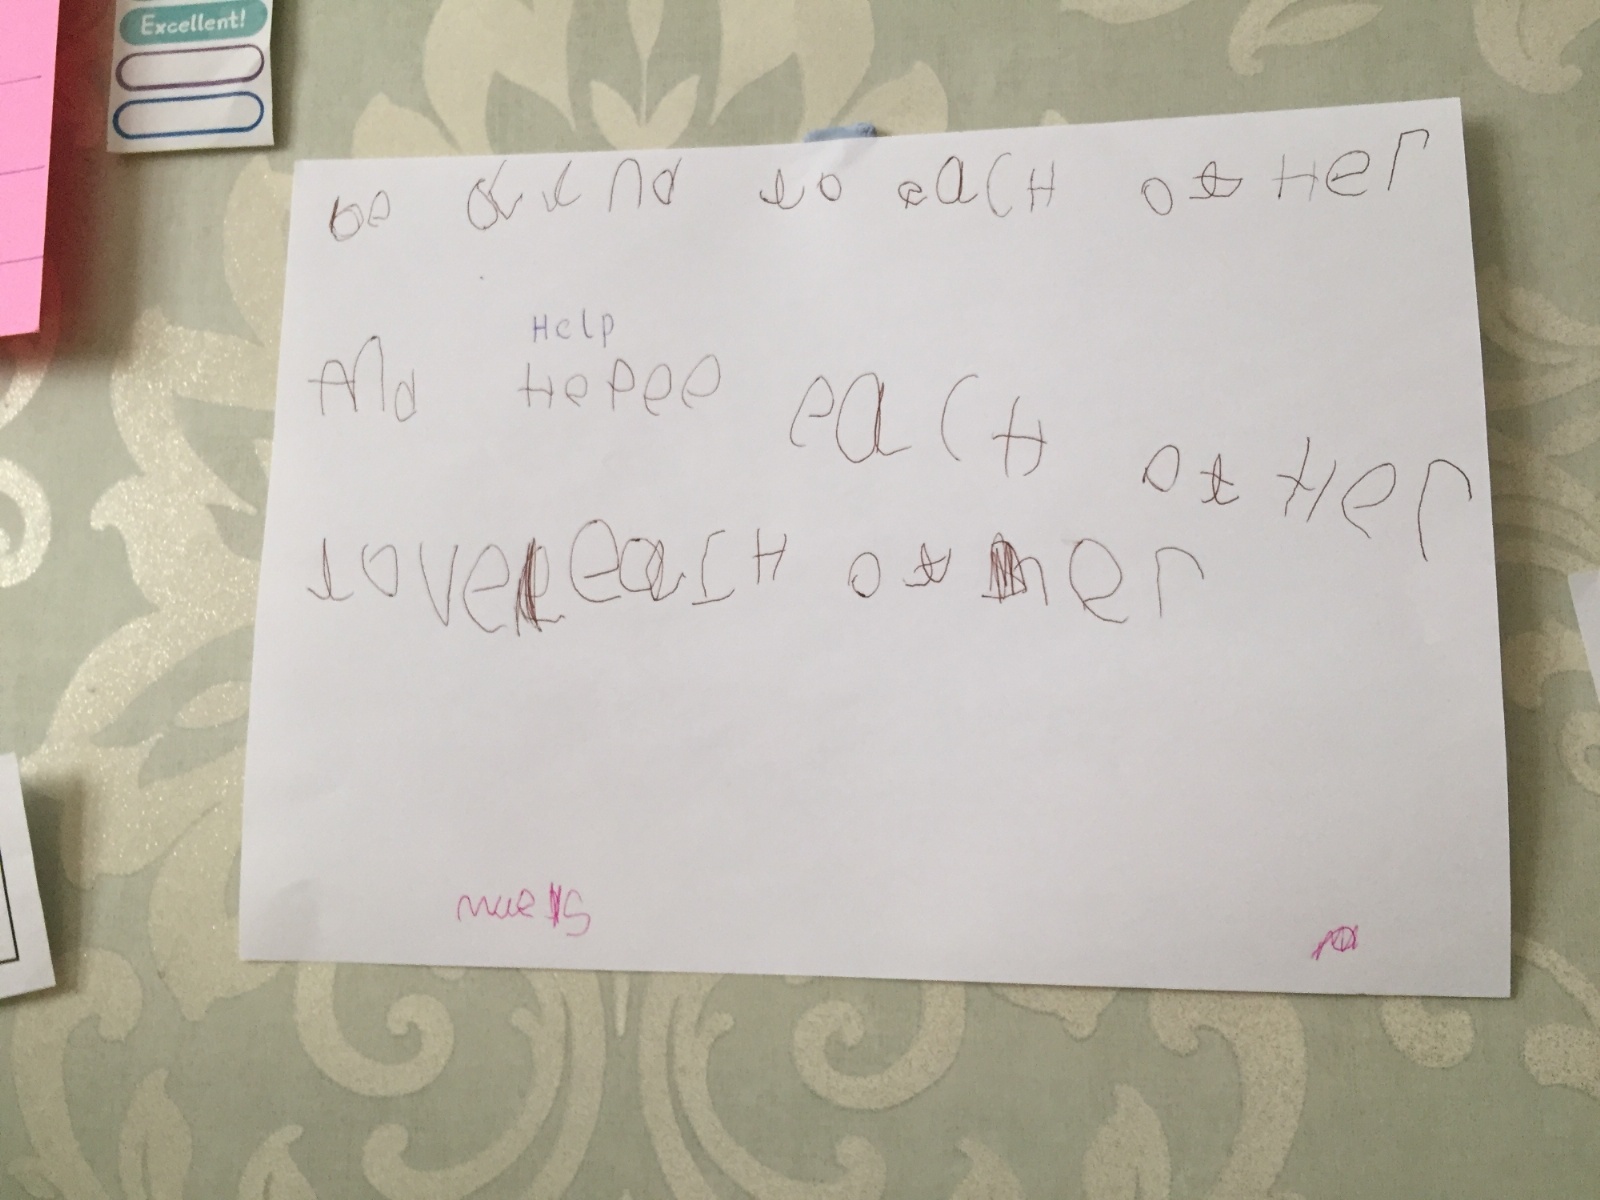 Excellent!
be kind to each other
Help
And Hepee each other
love each other